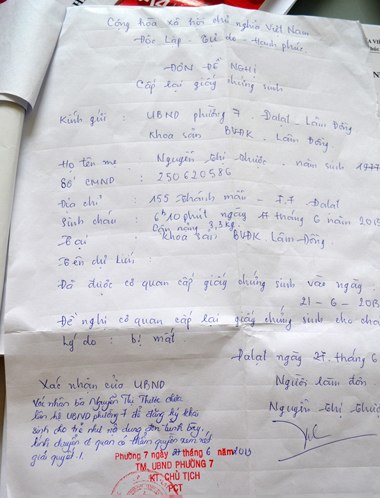 Cộng hòa xã hội chủ nghĩa Việt Nam
Độc Lập - Tự do - Hạnh phúc
ĐƠN ĐỀ NGHỊ
Cấp lại giấy chứng sinh
Kính gửi : UBND phường 7 - Dalat - Lâm Đồng
Khoa sản BVĐK - Lâm Đồng
Họ tên mẹ : Nguyễn Thị Thước - năm sinh 1977
Số CMND : 250620586
Địa chỉ : 155 Thánh mẫu - F.7 Dalat
Sinh cháu : 6h10phút ngày tháng 6 năm 201
Cân nặng 3,3kg
Tại : Khoa sản BVĐK Lâm Đồng
Tên dự
Đã được cơ quan cấp giấy chứng sinh vào ngày
21-6-201
Đề nghị cơ quan cấp lại giấy chứng sinh cho
Lý do : bị mất
Dalat ngày 27 tháng 6
Xác nhận của UBND
Người làm đơn
Xác nhận bà Nguyễn Thị Thước chưa
liên hệ UBND phường 7 để đăng ký khai
sinh cho trẻ như nội dung đơn trình bày.
Kính chuyển cơ quan có thẩm quyền xem xét
giải quyết.
Nguyễn Thị Thước
Phường 7 ngày 27 tháng 6 năm 2013
TM. UBND PHƯỜNG 7
KT. CHỦ TỊCH
PCT